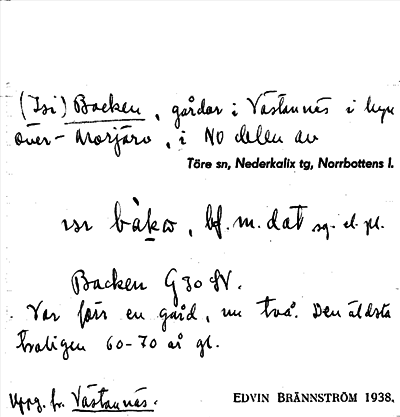 (Isi) Backen, gårdar i Västannäs i byn
Över-Morjärv, i NO delen av
Töre sn, Nederkalix tg, Norrbottens l.
bf. m. dat sg. el. pl.
Backen G 30 SV.
Var förr en gård, nu två. Den äldsta
troligen 60-70 år gl.
Uppg. fr. Västannäs.
EDVIN BRÄNNSTRÖM 1938.